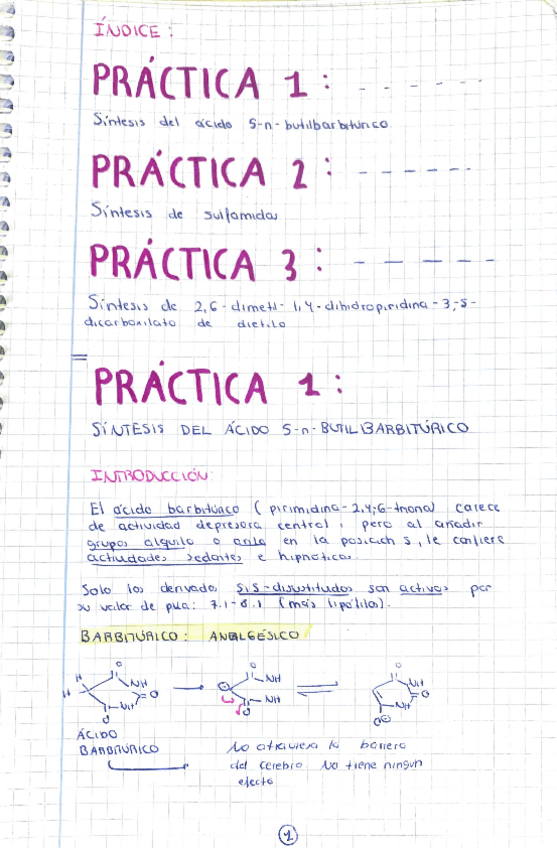 ÍNDICE :
PRÁCTICA 1 : - - - - - -
Síntesis del ácido 5-n-butilbarbitúrico
PRÁCTICA 2 : - - - - - -
Síntesis de sulfamidas
PRÁCTICA 3 : - - - - -
Síntesis de 2,6-dimetil-1,4-dihidropiridina-3,5-
dicarboxilato de dietilo
PRÁCTICA 1 :
SÍNTESIS DEL ÁCIDO 5-n-BUTILBARBITÚRICO
INTRODUCCIÓN:
El ácido barbitúrico (pirimidina-2,4,6-triona) carece
de actividad depresora central, pero al añadir
grupos alquilo o arilo en la posición 5, le confiere
actividades sedantes e hipnóticas.
Solo los derivados 5,5-disustituidos son activos por
su valor de pka: 7.1-8.1 (más lipófilos).
BARBITÚRICO : ANALGÉSICO
O O O
H NH NH NH
H O NH O
NH O NH
O O⊖
ÁCIDO
BARBITÚRICO
No atraviesa la barrera
del cerebro No tiene ningún
efecto
1